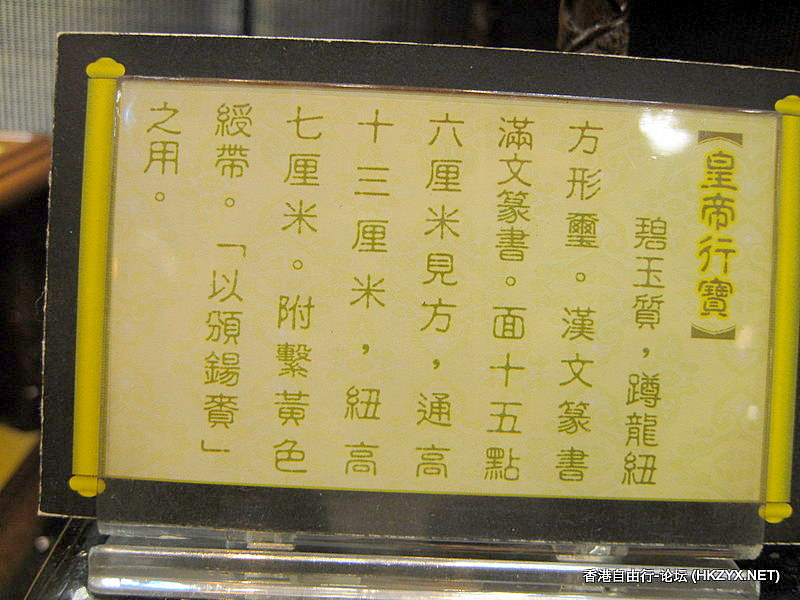 【皇帝行寶】
碧玉質，蹲龍紐
方形璽。漢文篆書
滿文篆書。面十五點
六厘米見方，通高
十三厘米，紐高
七厘米。附繫黃色
綬帶。「以頒錫賚」
之用。
香港自由行-论坛 (HKZYX.NET)